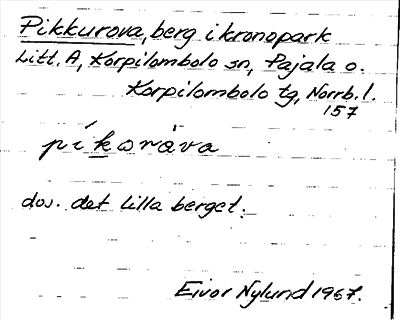 Pikkurova, berg i kronopark
Litt. A, Korpilombolo sn, Pajala o.
Korpilombolo tg, Norrb. l.
157
píkoràva
dvs. det lilla berget.
Eivor Nylund 1967.